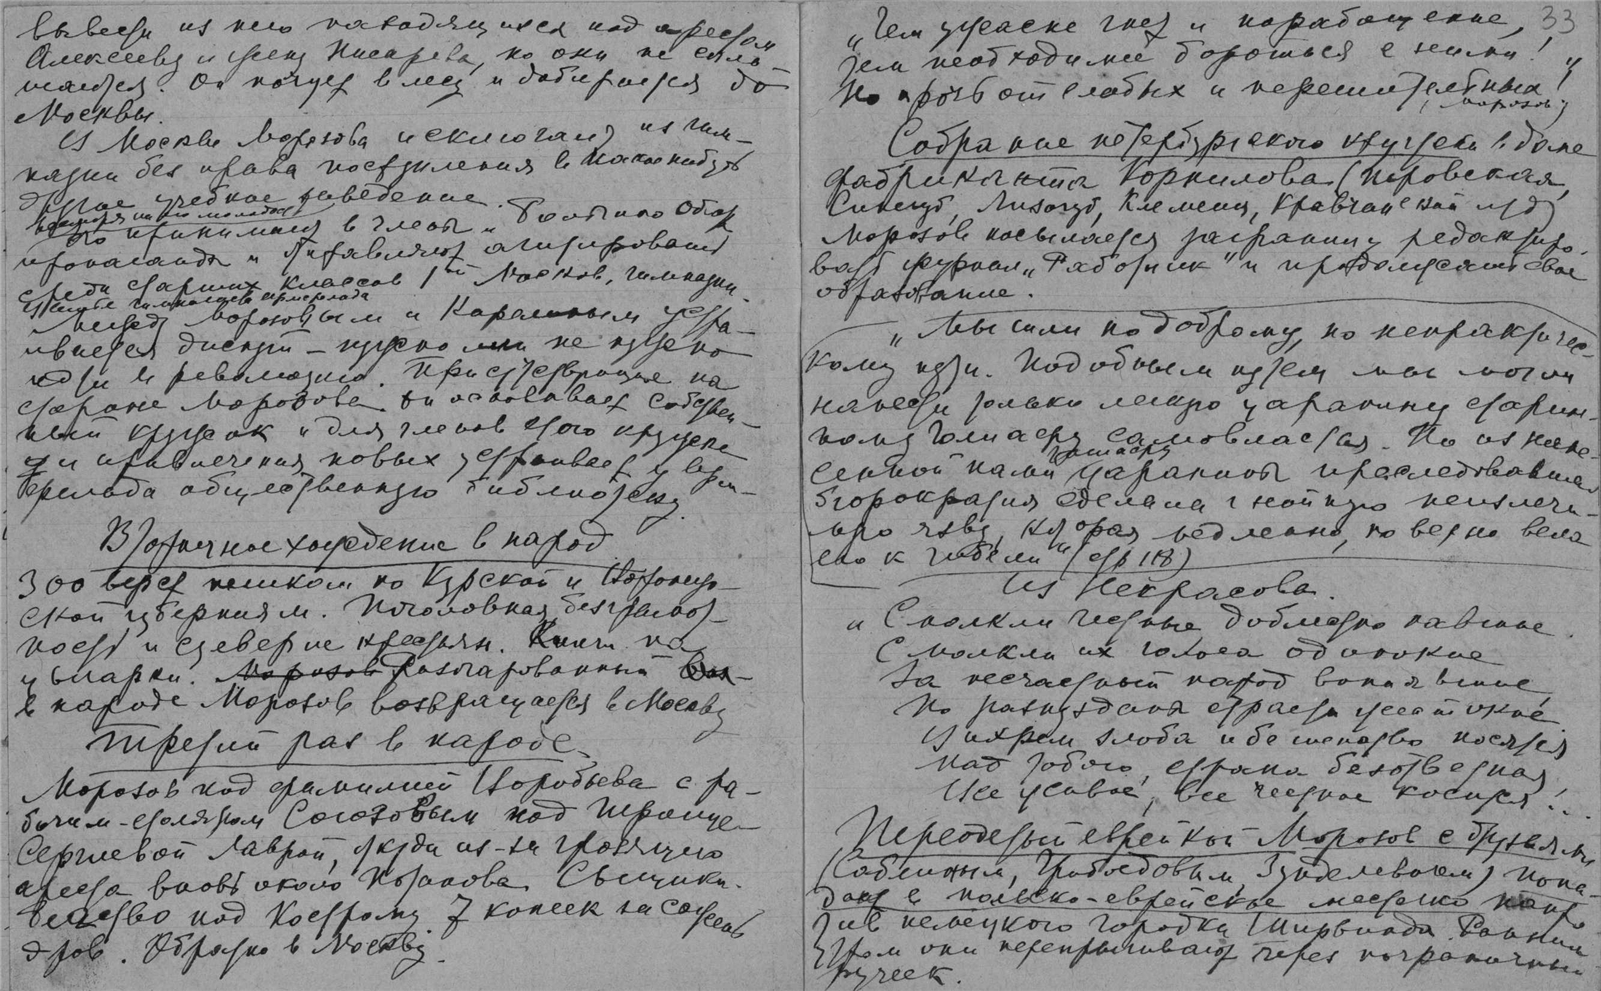 вывести из него находящихся под арестом
Алексееву и жену Писарева, но они не согла-
шаются. Он ночует в лесу и добирается до
Москвы.
Из Москвы Морозова исключают из гим-
назии без права поступления в какое нибудь
другое учебное заведение.
несмотря на его молодость
Его принимают в члены „Большого Общ
пропаганды" и отправляют агитировать
среди старших классов 1ой Москов. гимназии.
Между Морозовым и Карелиным устра-
ивается диспут – нужно или не нужно
идти в революцию. Присутствующие на
стороне Морозова. Он основывает собствен-
ный кружок и для членов этого кружка
и привлечения новых устраивает у
общественную библиотеку.
Вторичное хождение в народ
300 верст пешком по Курской и Воронеж-
ской губерниям. Поголовная безграмот-
ность и суеверие крестьян. Книги на
цыгарки. Морозов Разочарованный
в народе Морозов возвращается в Москву
Третий раз в народе
Морозов под фамилией Воробьева с ра-
бочим-столяром Союзовым под Троице-
Сергиевой Лаврой, уходи из-за грозящего
ареста вновь около Сыщики.
Бегство под Кострому 7 копеек за сажень
дров. Обратно в Москву.
33
„Чем ужаснее гнет и порабощение,
Тем необходимей бороться с ними!
Но прочь от слабых и нерешительных!"
(Морозов)
Собрание петербургского кружка в доме
фабриканта Корнилова (Перовская,
Синегуб, Лизогуб, Клеменц, Кравчинский и др)
Морозов посылается заграницу редактиро-
вать журнал „Работник" и продолжать свое
образование.
„Мы шли по доброму, но непрактичес-
кому пути. Подобным путем мы могли
нанести только легкую царапину старин-
ному Голиафу самовластья. Но из нане-
сенной нами царапины преследовавшая
бюрократия сделала гнойную неизлечи-
мую язву, которая медленно, но верно вела
его к гибели" (стр 118)
Из Некрасова.
„Смолкли честные, доблестно павшие.
Смолкли их голоса одинокие
За несчастный народ вопиявшие,
Но разнузданы страсти жестокие
Вихрем злоба и бешенство носятся
Над тобою, страна безответная
Все живое, все честное косится!..
Переодетый еврейкой Морозов с друзьями
(Саблиным, Грибоедовым Зунделевичем) попа-
дают в польско-еврейское местечко напро
тив немецкого городка Ширвинда. Ранним
утром они перепрыгивают через пограничный
ручеек.